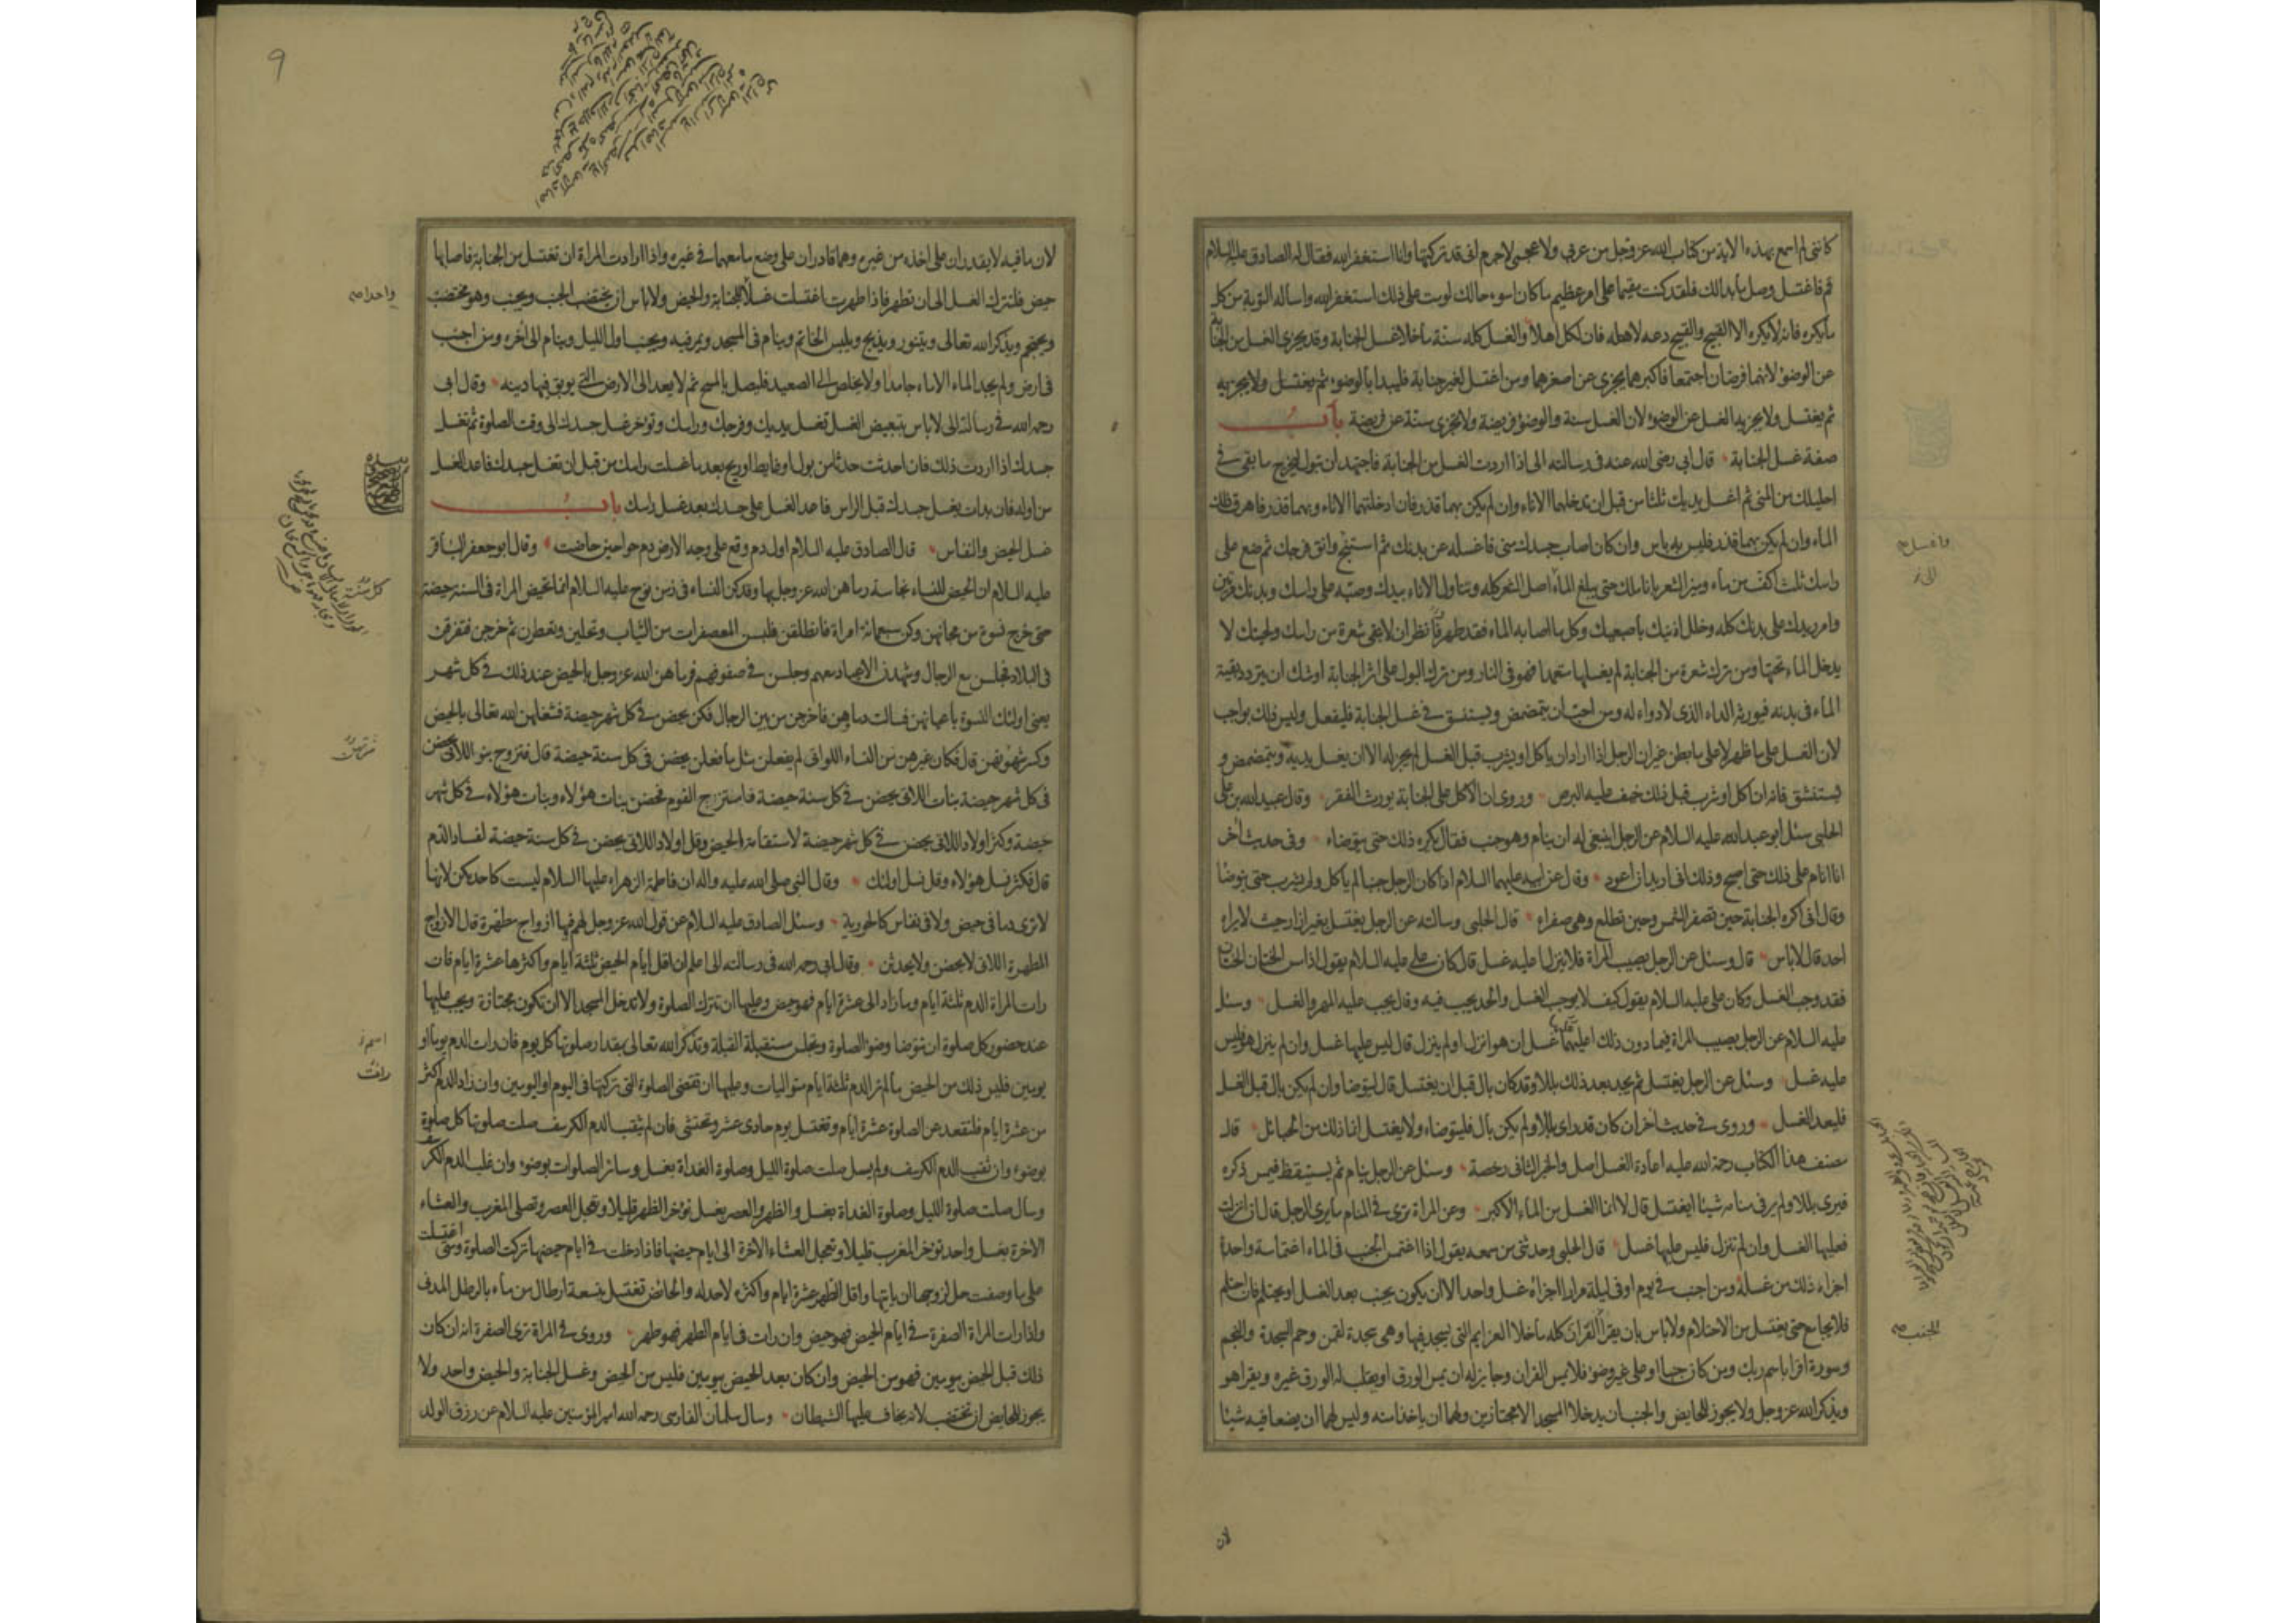 كانني لم اسمع بهذه الاية من كتاب الله عز وجل من عربي ولا عجمي لاجرم اني قد تركتها وانا استغفر الله فقال له الصادق عليه السلام
قم فاغتسل وصل ما بدالك فلقد كنت مقيما على امر عظيم ما كان اسوء حالك لو مت على ذلك استغفر الله واساله التوبة من كل
ما يكره فانه لا يكره الا القبيح والقبيح دعه لاهله فان لكل اهلا والغسل كله سنة ما خلا غسل الجنابة وقد يجزى الغسل من الجنابة
عن الوضوء لانهما فرضان اجتمعا فاكبرهما يجزي عن اصغرهما ومن اغتسل لغير جنابة فليبدا بالوضوء ثم يغتسل ولا يجزيه
ثم يغتسل ولا يجزيه الغسل عن الوضوء لان الغسل سنة والوضوء فريضة ولا تجزى سنة عن فريضة باب
صفة غسل الجنابة قال ابي رضى الله عنه فى رسالته الى اذا اردت الغسل من الجنابة فاجتهد ان تبول ليخرج ما بقي في
احليلك من المنى ثم اغسل يديك ثلثا من قبل ان تدخلهما الاناء وان لم يكن بهما قذر فان ادخلتهما الاناء وبهما قذر فاهرق ذلك
الماء وان لم يكن بهما قذر فليس به باس وان كان اصاب جسدك منى فاغسله عن بدنك ثم استنج وانق فرجك ثم ضع على
راسك ثلث اكف من ماء وميز الشعر باناملك حتى يبلغ الماء اصل الشعر كله وتناول الاناء بيدك وصبه على راسك وبدنك مرتين
وامرر يدك على بدنك كله وخلل اذنيك باصبعيك وكل ما اصابه الماء فقد طهر فانظر ان لا تبقى شعرة من راسك ولحيتك لا
يدخل الماء تحتها ومن ترك شعرة من الجنابة لم يغسلها متعمدا فهو فى النار ومن ترك البول على اثر الجنابة اوشك ان يتردد بقية
الماء فى بدنه فيورثه الداء الذى لا دواء له ومن احب ان يتمضمض ويستنشق في غسل الجنابة فليفعل وليس ذلك بواجب
لان الغسل على ما ظهر لا على ما بطن غير ان الرجل اذا اراد ان ياكل او يشرب قبل الغسل لم يجز له الا ان يغسل يديه ويتمضمض و
يستنشق فانه ان اكل او شرب قبل ذلك خيف عليه البرص وروى ان الاكل على الجنابة يورث الفقر وقال عبيد الله بن على
الحلبى سئل ابو عبد الله عليه السلام عن الرجل اينبغي له ان ينام وهو جنب فقال يكره ذلك حتى يتوضاء وفى حديث آخر
انا انام على ذلك حتى اصبح وذلك انى اريد ان اعود وقال عن ابيه عليهما السلام اذا كان الرجل جنبا لم ياكل ولم يشرب حتى يتوضا
وقال انى اكره الجنابة حين تصفر الشمس وحين تطلع وهى صفراء قال الحلبى وسالته عن الرجل يغتسل بغير ازار حيث لا يراه
احد قال لا باس قال وسئل عن الرجل يصيب المراة فلا ينزل اعليه غسل قال كان على عليه السلام يقول اذا مس الختان الختان
فقد وجب الغسل وكان على عليه السلام يقول كيف لا يوجب الغسل والحد يجب فيه وقال يجب عليه المهر والغسل وسئل
عليه السلام عن الرجل يصيب المراة فيما دون ذلك اعليهما غسل ان هو انزل او لم ينزل قال ليس عليها غسل وان لم ينزل هو فليس
عليه غسل وسئل عن الرجل يغتسل ثم يجد بعد ذلك بللا وقد كان بال قبل ان يغتسل قال ليتوضا وان لم يكن بال قبل الغسل
فليعد الغسل وروى في حديث اخر ان كان قد راى بللا ولم يكن بال فليتوضاء ولا يغتسل انما ذلك من الحبائل قال
مصنف هذا الكتاب رحمة الله عليه اعادة الغسل اصل والخبر الثانى رخصة وسئل عن الرجل ينام ثم يستيقظ فيمس ذكره
فيرى بللا ولم ير فى منامه شيئا ايغتسل قال لا انما الغسل من الماء الاكبر وعن المراة ترى في المنام ما يرى الرجل قال ان انزلت
فعليها الغسل وان لم تنزل فليس عليها غسل قال الحلبى وحدثنى من سمعه يقول اذا اغتمس الجنب فى الماء اغتماسة واحدة
اجزاه ذلك من غسله ومن اجنب في يوم او فى ليلة مرارا اجزاه غسل واحد الا ان يكون يجنب بعد الغسل او يحتلم فان احتلم
فلا يجامع حتى يغتسل من الاحتلام ولا باس بان يقرأ القران كله ما خلا العزايم التى يسجد فيها وهى سجدة لقمن وحم السجدة والنجم
وسورة اقرا باسم ربك ومن كان جنبا او على غير وضوء فلا يمس القران وجايز له ان يمس الورق او يقلب له الورق غيره ويقرا هو
ويذكر الله عز وجل ولا يجوز للحايض والجنب ان يدخلا المسجد الا مجتازين ولهما ان ياخذا منه وليس لهما ان يضعا فيه شيئا
واغسل
للجنب
لان
9
لان ما فيه لا يقدران على اخذه من غيره وهما قادران على وضع ما معهما في غيره واذا ارادت المراة ان تغتسل من الجنابة فاصابها
حيض فلتترك الغسل الى ان تطهر فاذا طهرت اغتسلت غسلا للجنابة والحيض ولا باس ان يختضب الجنب ويجنب وهو مختضب
ويحتجم ويذكر الله تعالى ويتنور ويذبح ويلبس الخاتم وينام فى المسجد ويمر فيه ويجنب اول الليل وينام الى آخره ومن اجنب
فى ارض ولم يجد الماء الا ماء جامدا ولا يخلص الى الصعيد فليصل بالمسح ثم لا يعد الى الارض التي يوبق فيها دينه وقال ابى
رحمه الله في رسالته الى لا باس بتبعيض الغسل تغسل يديك وفرجك وراسك وتؤخر غسل جسدك الى وقت الصلوة ثم تغسل
جسدك اذا اردت ذلك فان احدثت حدثا من بول او غايط او ريح بعد ما غسلت راسك من قبل ان تغسل جسدك فاعد الغسل
من اوله فان بدات بغسل جسدك قبل الراس فاعد الغسل على جسدك بعد غسل راسك باب
غسل الحيض والنفاس قال الصادق عليه السلام اول دم وقع على وجه الارض دم حوا حين حاضت وقال ابو جعفر الباقر
عليه السلام ان الحيض للنساء نجاسة رماهن الله عز وجل بها وقد كن النساء فى زمن نوح عليه السلام انما تحيض المراة فى السنة حيضة
حتى خرج نسوة من مجانهن وكن سبعمائة امراة فانطلقن فلبسن المعصفرات من الثياب وتحلين وتعطرن ثم خرجن فتفرقن
فى البلاد فجلسن مع الرجال وشهدن الاعياد معهم وجلسن في صفوفهم فرماهن الله عز وجل بالحيض عند ذلك في كل شهر
يعنى اولئك النسوة باعيانهن فسالت دماوهن فاخرجن من بين الرجال فكن يحضن في كل شهر حيضة فشغلهن الله تعالى بالحيض
وكسر شهوتهن قال فكان غيرهن من النساء اللواتى لم يفعلن مثل ما فعلن يحضن فى كل سنة حيضة قال فتزوج بنو اللاتى يحضن
فى كل شهر حيضة بنات اللاتى يحضن في كل سنة حيضة فامتزج القوم فحضن بنات هؤلاء وبنات هؤلاء في كل شهر
حيضة وكثر اولاد اللاتى يحضن في كل شهر حيضة لاستقامة الحيض وقل اولاد اللاتى يحضن في كل سنة حيضة لفساد الدم
قال فكثر نسل هؤلاء وقل نسل اولئك وقال النبى صلى الله عليه واله ان فاطمة الزهراء عليها السلام ليست كاحد منكن لانها
لا ترى دما في حيض ولا فى نفاس كالحورية وسئل الصادق عليه السلام عن قول الله عز وجل لهم فيها ازواج مطهرة قال الازواج
المطهرة اللاتى لا يحضن ولا يحدثن وقال ابى رحمه الله فى رسالته الى اعلم ان اقل ايام الحيض ثلثة ايام واكثرها عشرة ايام فان
رات المراة الدم ثلثة ايام وما زاد الى عشرة ايام فهو حيض وعليها ان تترك الصلوة ولا تدخل المسجد الا ان تكون مجتازة ويجب عليها
عند حضور كل صلوة ان تتوضا وضوء الصلوة وتجلس مستقبلة القبلة وتذكر الله تعالى بمقدار صلوتها كل يوم فان رات الدم يوما او
يومين فليس ذلك من الحيض ما لم تر الدم ثلثة ايام متواليات وعليها ان تقضى الصلوة التى تركتها فى اليوم او اليومين وان زاد الدم اكثر
من عشرة ايام فلتقعد عن الصلوة عشرة ايام وتغتسل يوم حادى عشر وتحتشى فان لم يثقب الدم الكرسف صلت صلوتها كل صلوة
بوضوء وان ثقب الدم الكرسف ولم يسل صلت صلوة الليل وصلوة الغداة بغسل وسائر الصلوات بوضوء وان غلب الدم الكرسف
وسال صلت صلوة الليل وصلوة الغداة بغسل والظهر والعصر بغسل تؤخر الظهر قليلا وتعجل العصر وتصلى المغرب والعشاء
الاخرة بغسل واحد تؤخر المغرب قليلا وتعجل العشاء الاخرة الى ايام حيضها فاذا دخلت في ايام حيضها تركت الصلوة ومتى اغتسلت
على ما وصفت حل لزوجها ان ياتيها واقل الطهر عشرة ايام واكثره لا حد له والحائض تغتسل بتسعة ارطال من ماء بالرطل المدنى
واذا رات المراة الصفرة في ايام الحيض فهو حيض وان رات فى ايام الطهر فهو طهر وروى في المراة ترى الصفرة انه ان كان
ذلك قبل الحيض بيومين فهو من الحيض وان كان بعد الحيض بيومين فليس من الحيض وغسل الجنابة والحيض واحد ولا
يجوز للحايض ان تختضب لانه يخاف عليها الشيطان وسال سلمان الفارسى رحمه الله امير المؤمنين عليه السلام عن رزق الولد
واحدا صح